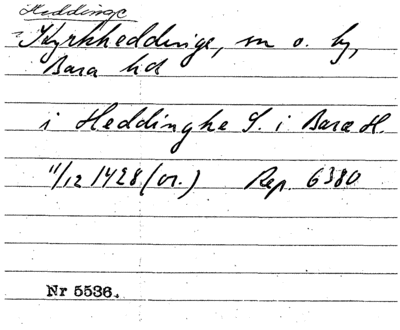 Heddinge
Kyrkheddinge, sn o. by,
Bara hd
i Heddinghe S. i Bara H.
11/12 1428 (or.) Rep. 6380
Nr 5536.